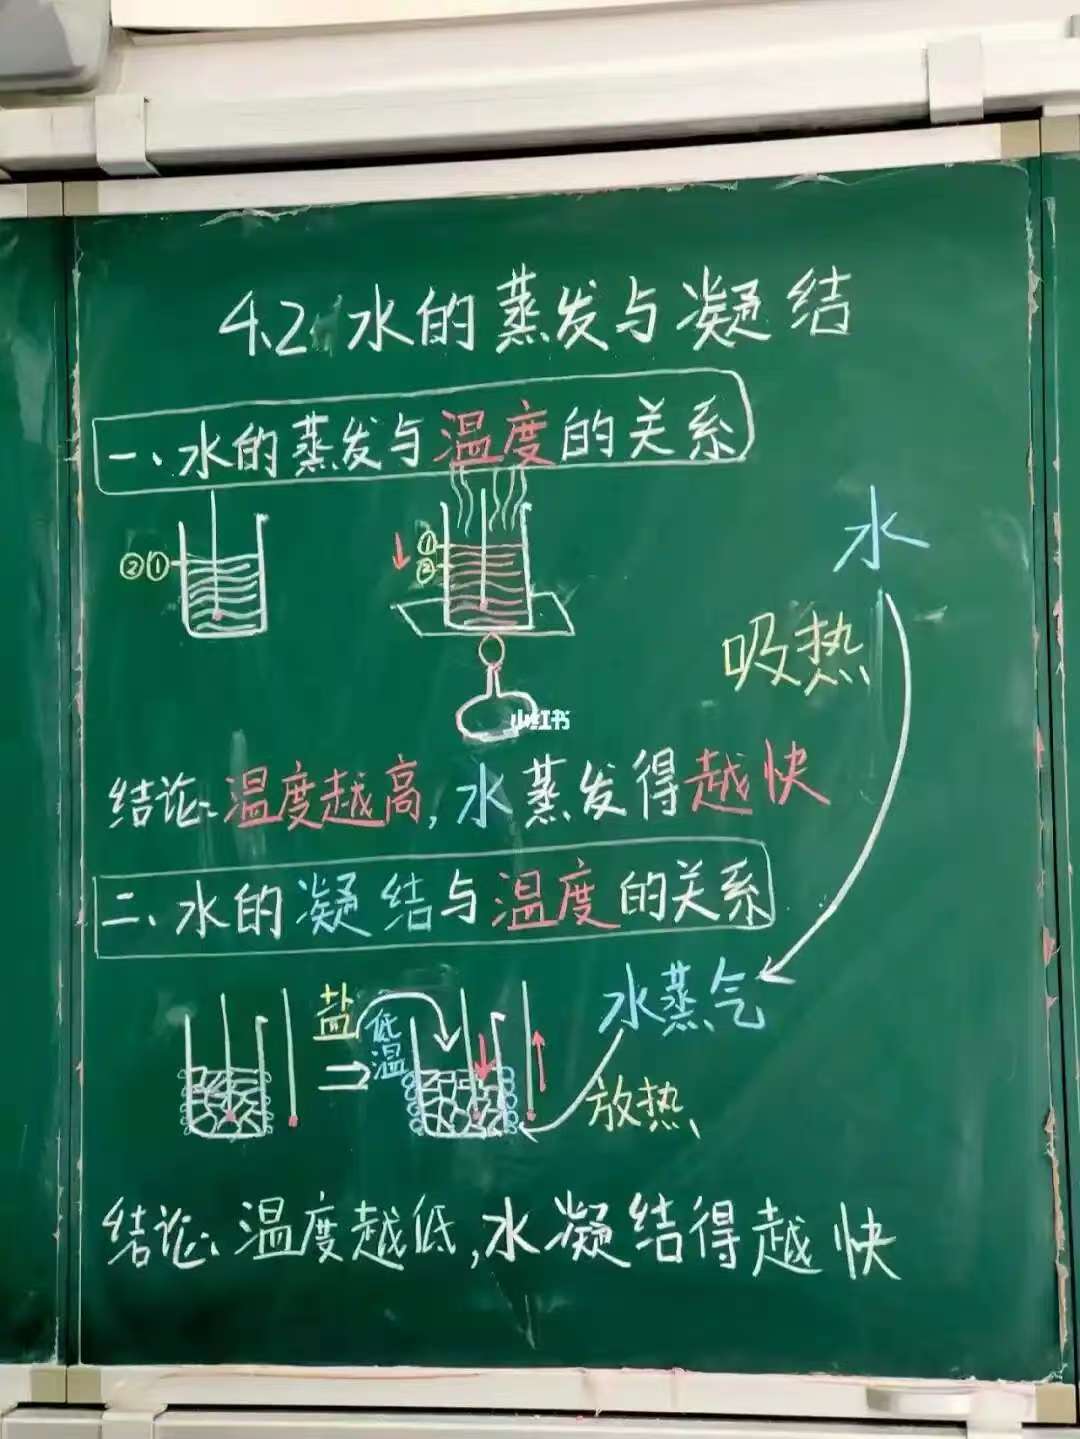 4.2 水的蒸发与凝结
一、水的蒸发与温度的关系
②①
①
②
水
吸热
小红书
结论:温度越高,水蒸发得越快
二、水的凝结与温度的关系
水蒸气
盐
低温
放热
结论:温度越低,水凝结得越快